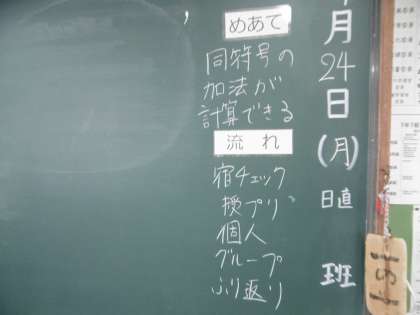 月24日(月)
日直 班
めあて
同符号の
加法が
計算できる
流れ
宿チェック
授プリ
個人
グループ
ふり返り